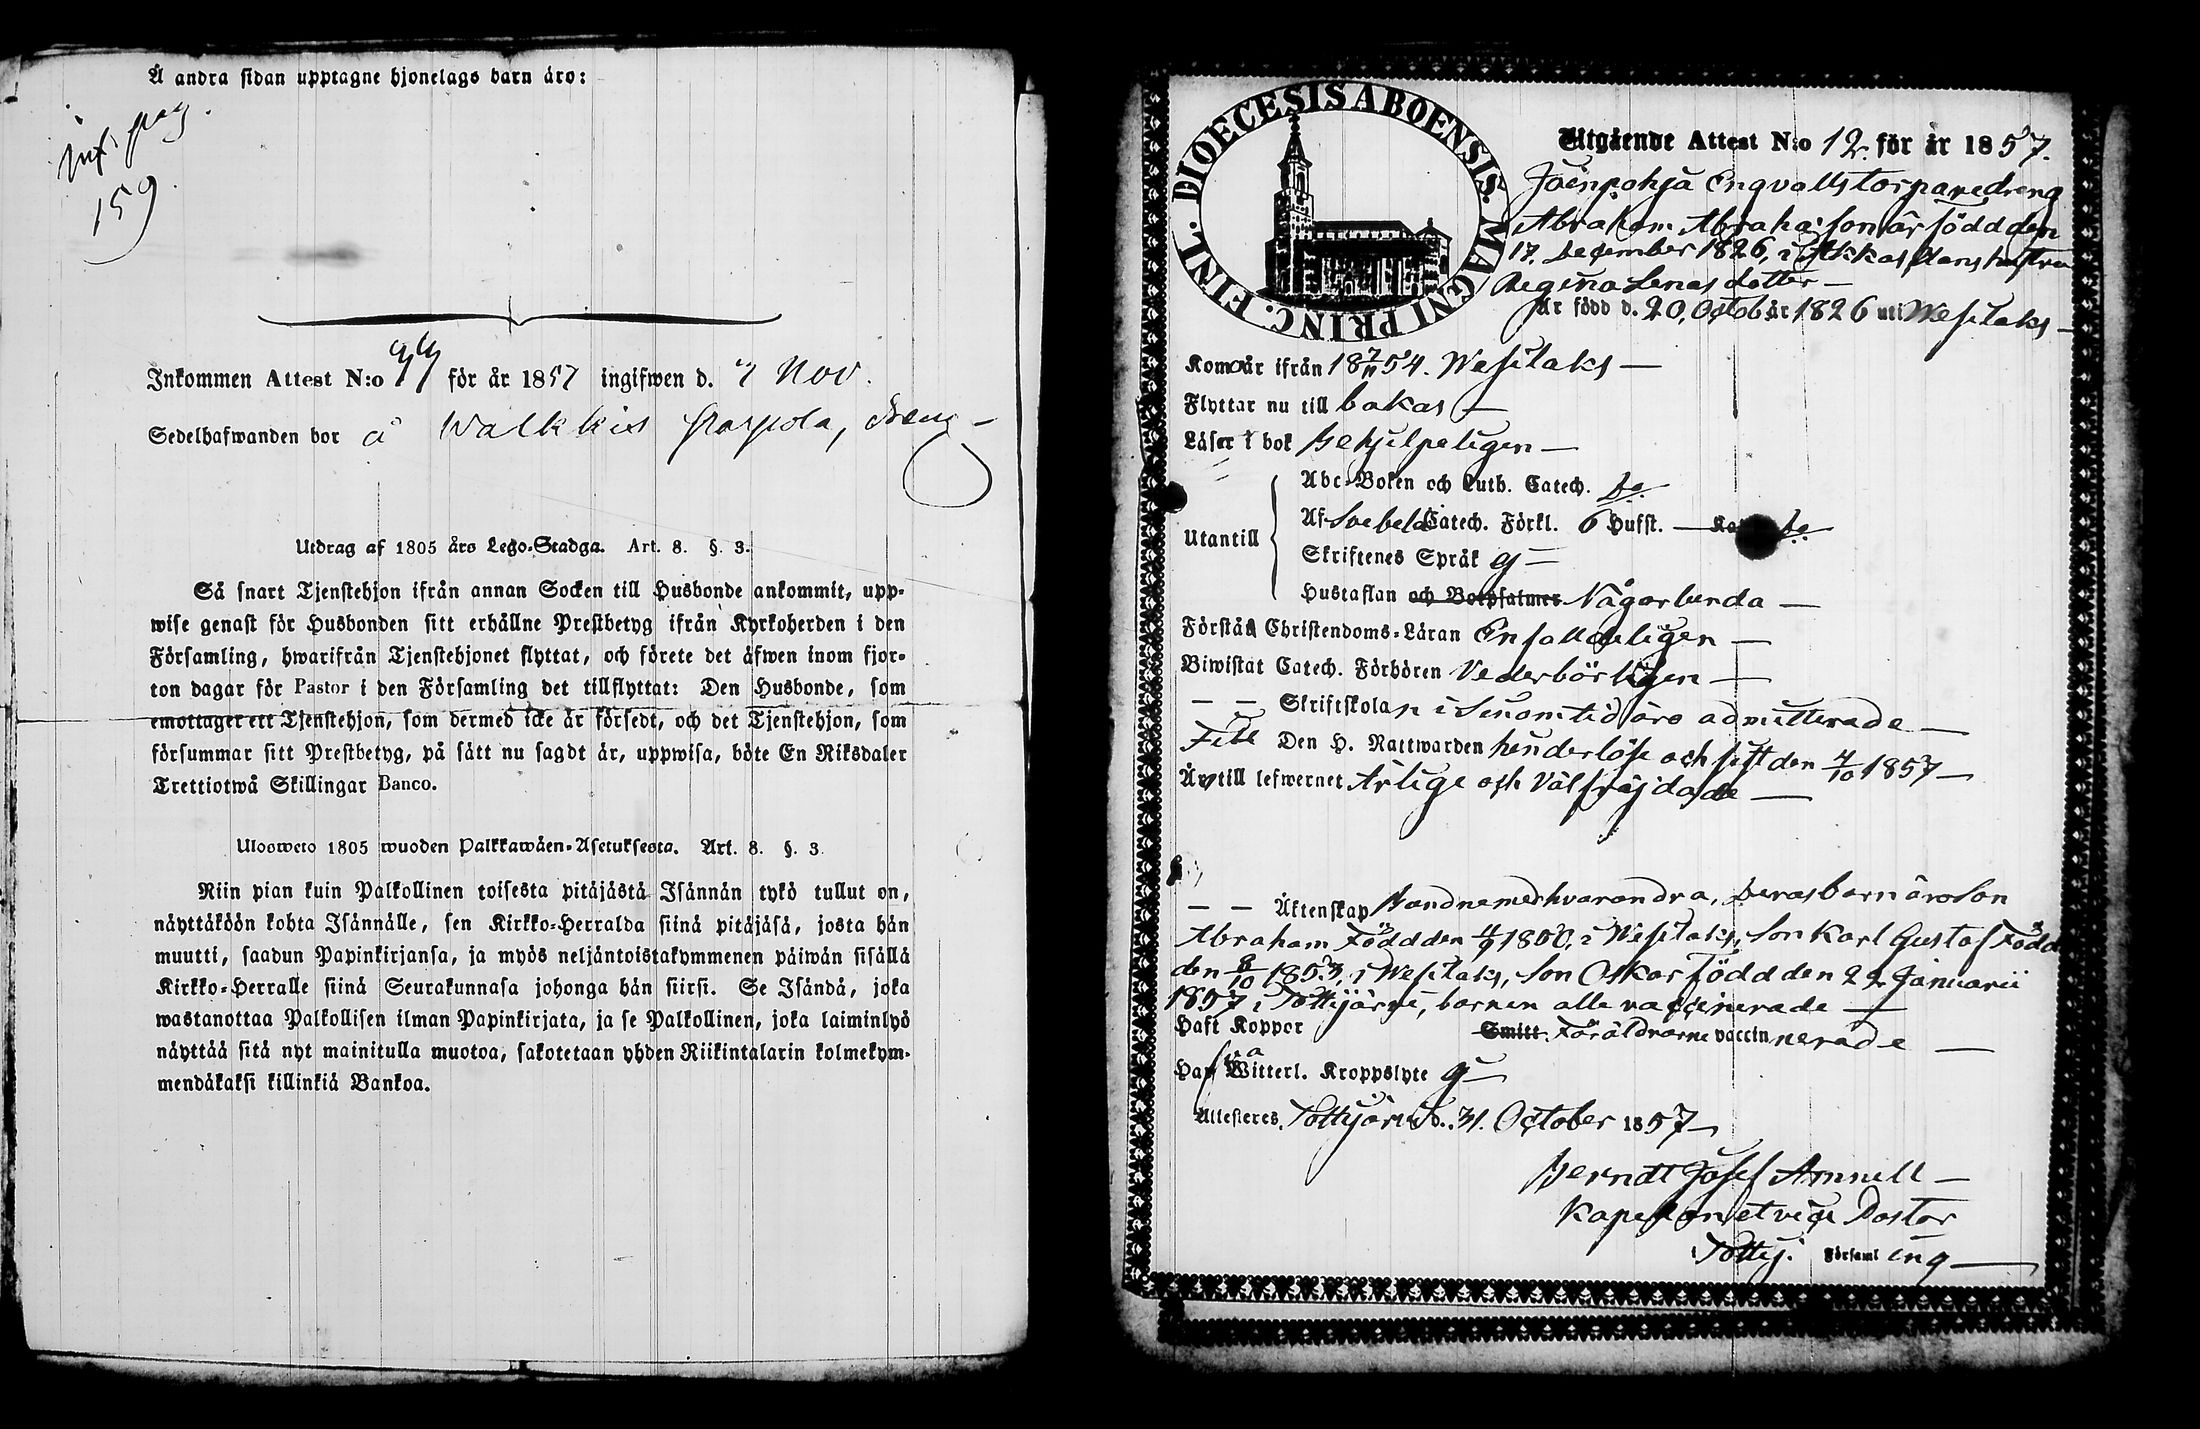 Å andra sidan upptagne hjonelags barn äro:
pag.
159
Inkommen Attest N:o 44 för år 1857 ingifwen d. 7 Nov.
Sedelhafwanden bor å Walkkis Parpola, dräng
Utdrag af 1805 års Lego-Stadga. Art. 8. §. 3.
Så snart Tjenstehjon ifrån annan Socken till Husbonde ankommit, upp-
wise genast för Husbonden sitt erhållne Prestbetyg ifrån Kyrkoherden i den
Församling, hwarifrån Tjenstehjonet flyttat, och förete det äfwen inom fjor-
ton dagar för Pastor i den Församling det tillflyttat: Den Husbonde, som
emottager ett Tjenstehjon, som dermed icke är försedt, och det Tjenstehjon, som
försummar sitt Prestbetyg, på sätt nu sagdt är, uppwisa, böte En Riksdaler
Trettiotwå Skillingar Banco.
Ulosweto 1805 wuoden Palkkawäen-Asetuksesta. Art. 8. §. 3.
Niin pian kuin Palkollinen toisesta pitäjästä Isännän tykö tullut on,
näyttäköön kohta Isännälle, sen Kirkko-Herralda siinä pitäjäsä, josta hän
muutti, saadun Papinkirjansa, ja myös neljäntoistakymmenen päiwän sisällä
Kirkko-Herralle siinä Seurakunnasa johonga hän siirsi. Se Isändä, joka
wastanottaa Palkollisen ilman Papinkirjata, ja se Palkollinen, joka laiminlyö
näyttää sitä nyt mainitulla muotoa, sakotetaan yhden Riikintalarin kolmekym-
mendäkaksi killinkiä Bankoa.
DIOECESIS ABOENSIS. MAGNI PRINC. FINL.
Utgående Attest N:o 12. för år 1857.
Joenpohja Engvalls torparedreng
Abraham Abrahamson är född den
17. December 1826, i Akkas, Hans hustru
Regina Lenas dotter —
Är född d. 20. October 1826 uti Wesilaks —
Komo är ifrån 18 7/11 54. Wesilaks —
Flyttar nu till Lokas —
Läser i bok Behjelpeligen —
Utantill
Abc-Boken och Luth. Catech. do.
Af Svebeli Catech. Förkl. 6 Hufst. — do —
Skriftenes Språk g —
Hustaflan och Botpsalmer Någorlunda —
Förstå Christendoms-Läran Enfaldeligen —
Biwistat Catech. Förhören Vederbörligen —
— — Skriftskolan i sinom tid äro admitterade —
Den H. Nattwarden hinderlöse och sist den 4/10 1857 —
Äro till lefwernet Ärlige och Välfräjdade —
— — Äktenskap Bandne med hvarandra, Deras barn äro Son
Abraham Född den 4/9 1850, i Wesilaks, Son Karl Gustaf Född
den 8/10 1853, i Wesilaks, Son Oskar Född den 22 Januarii
1857 i Tottijärvi, barnen alle vaccinerade —
Haft Koppor Smitt. Föräldrarne vaccinnerade —
Witterl. Kroppslyte g —
Attesteres, Tottijärvi d. 31. October 1857 —
Berndt Josef Amnell —
Kapellan et vice Pastor
i Tottij. Församling —